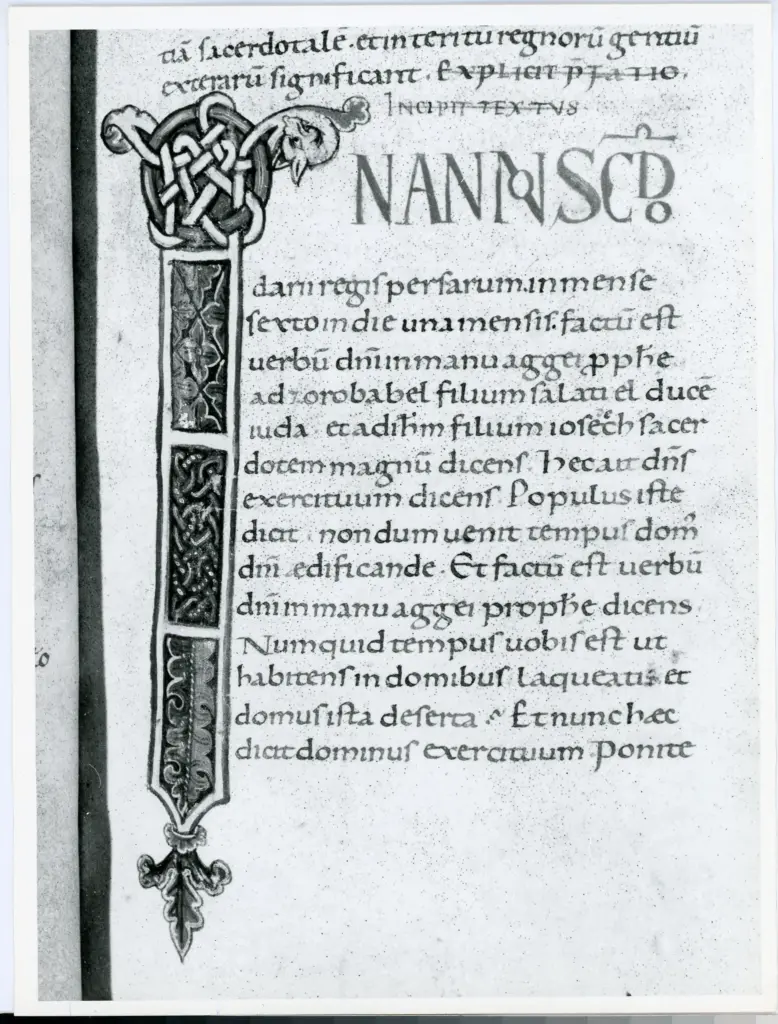 tiā sacerdotalē. et interitū regnorū gentiū
exterarū significant. Explicit p̄fatio.
Incipit textus
INANNOSCDO
darii regis persarum. in mense
sexto in die una mensis. factū est
verbū dn̄i in manu aggei ꝓph̄e
ad zorobabel filium salati el ducē
iuda et ad ih̄m filium iosech sacer
dotem magnū dicens. Hec ait dn̄s
exercituum dicens. Populus iste
dicit. nondum uenit tempus dom̄
dn̄i ędificande. Et factū est uerbū
dn̄i in manu aggei proph̄e dicens
Numquid tempus uobis est ut
habitens in domibus laqueatis et
domus ista deserta. Et nunc hæc
dicit dominus exercituum Ponite